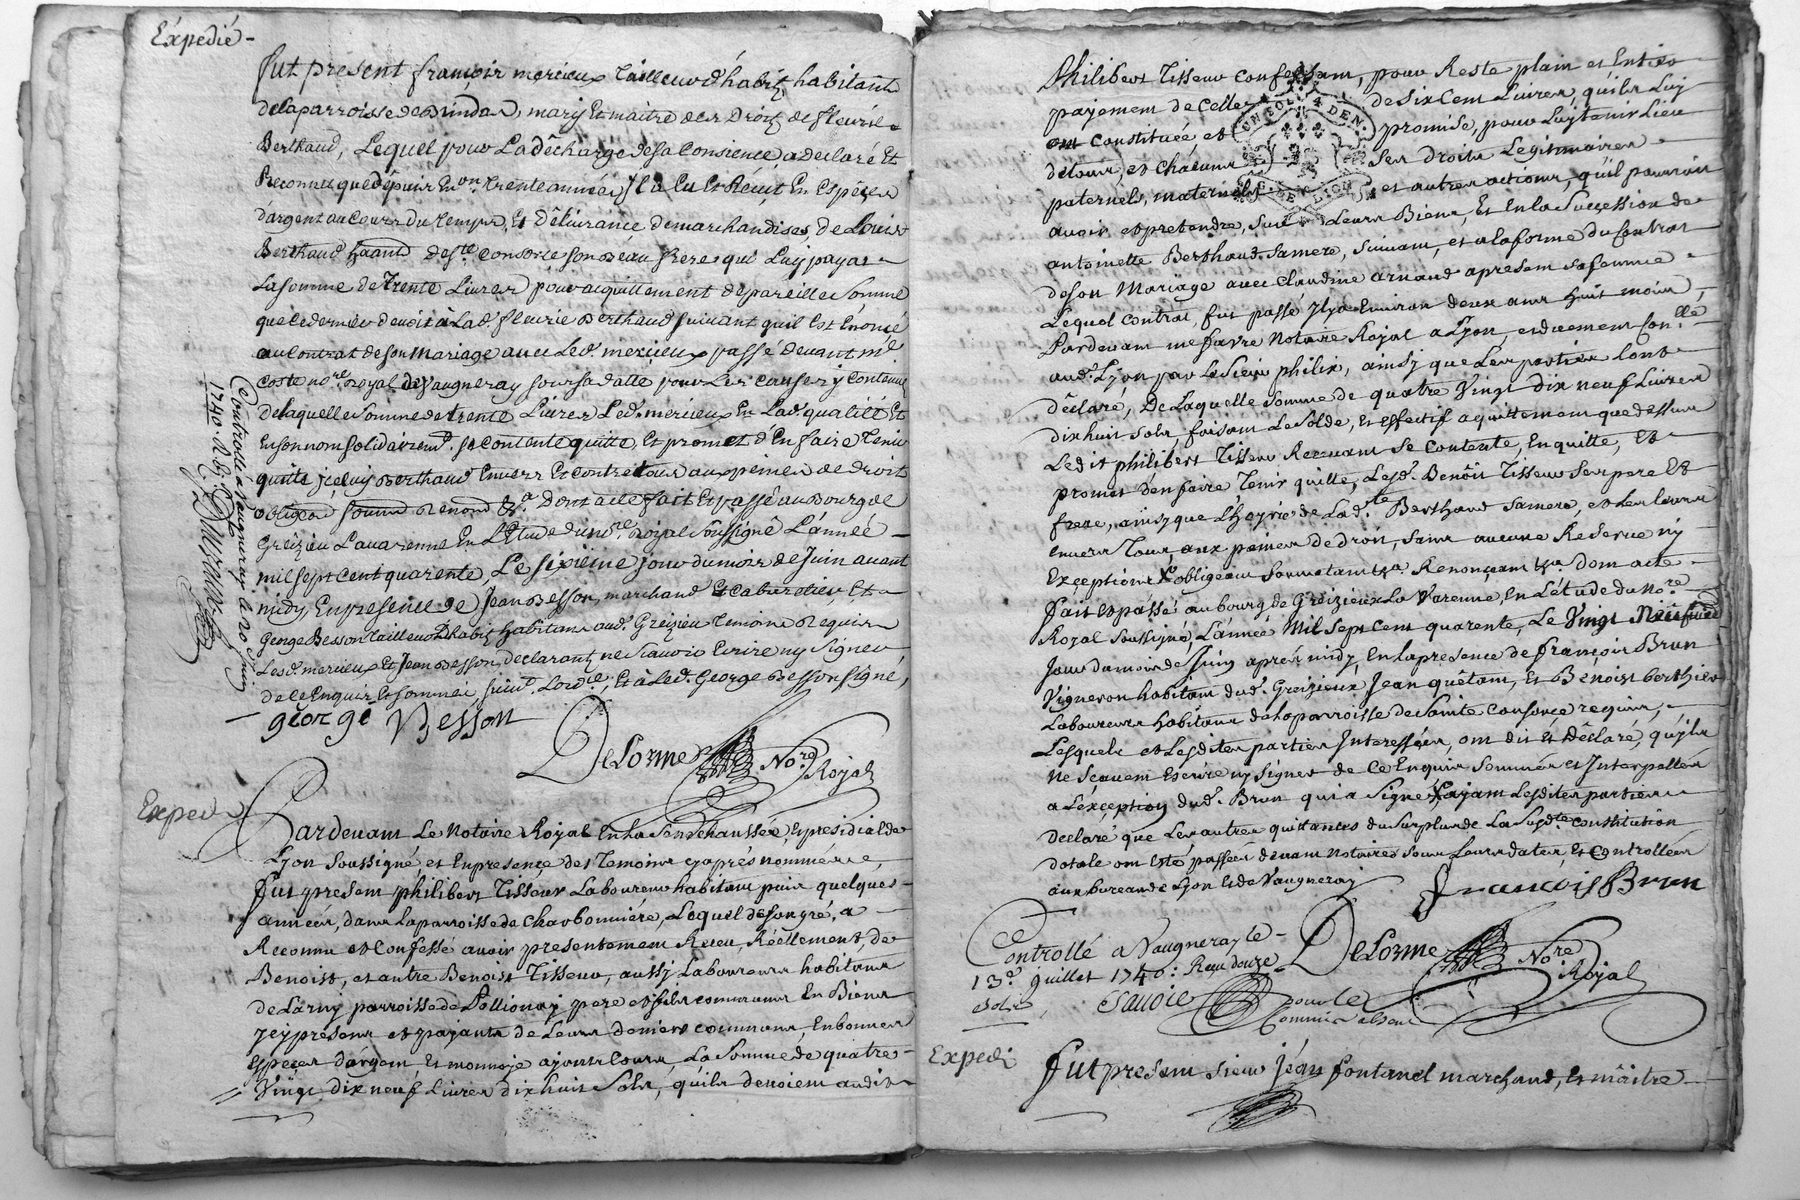 Éxpedié -
fut present françois mercieux Tailleur d'habitz habitant
de la parroisse de Brindas, mary et maitre des Droitz de fleurie
Berthaud, Lequel pour La dêcharge de sa Consience a declaré et
Reconnu que depuis Environ trente années Jl a Eu et Réçut En Espêces
d'argent au cours du temps, Et Dêlivrançe de marchandises de Louis
Berthaud haant de Ste Consorce son Beau frere qui Luy paya
La somme de Trente Livres pour acquittement de pareille Somme
que ce dernier devoit à Lad. fleurie Berthaud suivant qu'il Est Énoncé
au Contrat de son Mariage avec Led. mercieux passé devant me
Coste nore. Royal de Vaugneray sous sa datte pour Les causes y contenue
de laquelle Somme de trente Livres Led. mercieux En Lad. qualitté Et
En son nom solidairemt. se contente quitte, Et promet d'En faire tenir
quitte jceluy Berthaud Envers Et contre tous aux peines de droit
obligeon soumon Renonon &a. Dont acte fait Et passé au Bourg de
Greizieu Lavarenne En L'Etude du nore. Royal Soussigné L'année
mil sept cent quarente, Le sixieme jour du mois de Juin avant
midy, En presence de Jean Besson, marchand Et cabaretier, Et
George Besson tailleur d'habitz habitans aud. Greizieu temoins Requis
Lesd. mercieux Et Jean Besson, declarant ne Sçavoir Ecrire ny Signer
de ce Enquis Et sommé, suivt. L'ordce, Et à Led. George Besson signé,
george Besson
DeLorme Nore
Royal
Controllé a vaugneray le 10 Juin
1740. R.
Expedié
Pardevant Le Notaire Royal En la Sénéchaussée, Et presidial de
Lyon Soussigné, et En presençe des Temoins cy aprés nommés,
fut present philibert Tisseur Laboureur habitant puis quelques
années, dans la parroisse de Charbonniére, Lequel de son gré, a
Reconnu et Confessé avoir presentement Reçu, Réellement, de
Benoist, et autre Benoist Tisseur, aussy Laboureurs habitans
de Larny parroisse de Pollionay pere et fils communs En Biens
Jcy présens et payants de Leurs deniers communs, En bonnes
Especes d'argent, Et monnoye ayants Cours, La Somme de quatre
Vingt dix neuf Livres dix huit Sols, qu'ils devoient audit
Philibert Tisseur Confessant, pour Reste plain et Entier
payement de Celles de Six Cent Livres, qu'ils Luy
ont Constituée et promise, pour Luy tenir Lieu
de tous, et Chacuns Ses droits Legitimaires
paternels, maternels et autres actions, qu'il pourroit
avoir et pretendre, Sur Leurs Biens, Et En la Succession de
antoinette Berthaud Sa mere, Suivant, et a la forme du Contrat
de Son Mariage avec Claudine arnaud a present Sa femme
Lequel Contrat, fut passé Jl y a Environ deux ans huit mois,
Pardevant me favre Notaire Royal a Lyon, et duement Conllé
aud. Lyon par Le Sieur philix, ainsy que Les parties l'ont
dêclaré, De Laquelle Somme de quatre Vingt dix neuf Livres
dix huit Sols, faisant Le Solde, Et effectif acquittement que dessus
Ledit philibert Tisseur Recevant Se Contente, En quitte, Et
promet d'En faire Tenir quitte, Lesd. Benoit Tisseur Ses pere Et
frere, ainsy que L'hoyrie de Lad. Berthaud Sa mere, et Les Leurs
Envers Tous, aux peines de droit, Sans aucune Reserve ny
Exçeption obligeant Soumetant &a. Renonçant &a. Dont acte
fait Et passé au bourg de Greizieux La Varenne, En L'étude du Nore.
Royal Soussigné, L'année Mil Sept Cent quarente, Le Vingt Neufvie
Jour du mois de Juin aprés midy, En la presence de françois Brun
Vigneron habitant dud. Greizieux, Jean quêtant, Et Benoist berthier
Laboureurs habitans de la parroisse de Sainte Consorce requis,
Lesquels et Lesdites parties Interessées, ont dit Et Dêclaré, qu'jls
Ne Sçavent Escrire ny Signer de Ce Enquis Sommés et Interpellés
a L'exçeption dud. Brun qui a Signé ayant Lesdites parties
declaré que Les autres quittances du Surplus de La Susdte constitution
dotale ont Esté passées devant notaires Sous Leurs dates, Et Controllées
aux bureaux de Lyon Et de Vaugneray
françois Brun
Controllé a Vaugneray le
13e Juillet 1740: Reçu douze
Sols, Savoie pour le
Commis absent
DeLorme Nore
Royal
Expedié
fut present Sieur Jéan fontanel marchand, Et mâitre